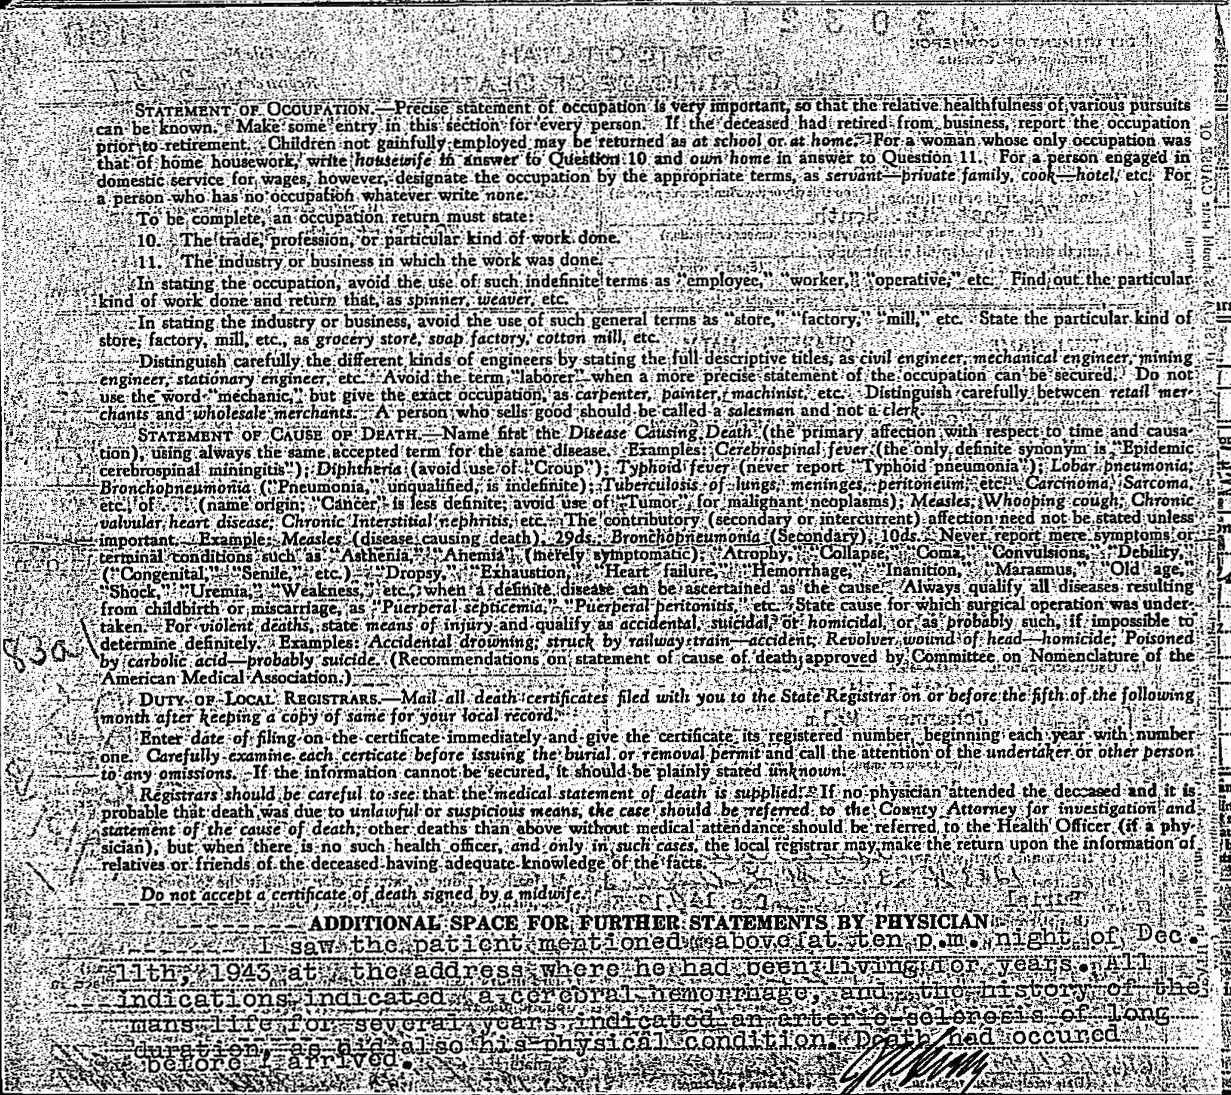 STATEMENT OF OCCUPATION.—Precise statement of occupation is very important, so that the relative healthfulness of various pursuits
can be known. Make some entry in this section for every person. If the deceased had retired from business, report the occupation
prior to retirement. Children not gainfully employed may be returned as at school or at home. For a woman whose only occupation was
that of home housework, write housewife in answer to Question 10 and own home in answer to Question 11. For a person engaged in
domestic service for wages, however, designate the occupation by the appropriate terms, as servant—private family, cook—hotel, etc. For
a person who has no occupation whatever write none.
To be complete, an occupation return must state:
10. The trade, profession, or particular kind of work done.
11. The industry or business in which the work was done.
In stating the occupation, avoid the use of such indefinite terms as "employee," "worker," "operative," etc. Find out the particular
kind of work done and return that, as spinner, weaver, etc.
In stating the industry or business, avoid the use of such general terms as "store," "factory," "mill," etc. State the particular kind of
store, factory, mill, etc., as grocery store, soap factory, cotton mill, etc.
Distinguish carefully the different kinds of engineers by stating the full descriptive titles, as civil engineer, mechanical engineer, mining
engineer, stationary engineer, etc. Avoid the term "laborer" when a more precise statement of the occupation can be secured. Do not
use the word "mechanic," but give the exact occupation, as carpenter, painter, machinist, etc. Distinguish carefully between retail mer-
chants and wholesale merchants. A person who sells good should be called a salesman and not a clerk.
STATEMENT OF CAUSE OF DEATH.—Name first the Disease Causing Death (the primary affection with respect to time and causa-
tion), using always the same accepted term for the same disease. Examples: Cerebrospinal fever (the only definite synonym is "Epidemic
cerebrospinal miningitis"); Diphtheria (avoid use of "Croup"); Typhoid fever (never report "Typhoid pneumonia"); Lobar pneumonia;
Bronchopneumonia ("Pneumonia," unqualified, is indefinite); Tuberculosis of lungs, meninges, peritoneum, etc. Carcinoma, Sarcoma,
etc., of (name origin; "Cancer" is less definite; avoid use of "Tumor" for malignant neoplasms); Measles; Whooping cough; Chronic
valvular heart disease; Chronic Interstitial nephritis, etc. The contributory (secondary or intercurrent) affection need not be stated unless
important. Example: Measles (disease causing death), 29ds. Bronchopneumonia (Secondary), 10ds. Never report mere symptoms or
terminal conditions such as "Asthenia," "Anemia" (merely symptomatic), "Atrophy," "Collapse," "Coma," "Convulsions," "Debility,"
("Congenital," "Senile," etc.) "Dropsy," "Exhaustion," "Heart failure," "Hemorrhage," "Inanition," "Marasmus," "Old age,"
"Shock," "Uremia," "Weakness," etc., when a definite disease can be ascertained as the cause. Always qualify all diseases resulting
from childbirth or miscarriage, as "Puerperal septicemia," "Puerperal peritonitis," etc. State cause for which surgical operation was under-
taken. For violent deaths, state means of injury and qualify as accidental, suicidal, or homicidal, or as probably such, if impossible to
determine definitely. Examples: Accidental drowning; struck by railway train—accident; Revolver wound of head—homicide; Poisoned
by carbolic acid—probably suicide. (Recommendations on statement of cause of death approved by Committee on Nomenclature of the
American Medical Association.)
83a
DUTY OF LOCAL REGISTRARS.—Mail all death certificates filed with you to the State Registrar on or before the fifth of the following
month after keeping a copy of same for your local record.
Enter date of filing on the certificate immediately and give the certificate its registered number, beginning each year with number
one. Carefully examine each certicate before issuing the burial or removal permit and call the attention of the undertaker or other person
to any omissions. If the information cannot be secured, it should be plainly stated unknown.
Registrars should be careful to see that the medical statement of death is supplied. If no physician attended the deceased and it is
probable that death was due to unlawful or suspicious means, the case should be referred to the County Attorney for investigation and
statement of the cause of death; other deaths than above without medical attendance should be referred to the Health Officer (if a phy-
sician), but when there is no such health officer, and only in such cases, the local registrar may make the return upon the information of
relatives or friends of the deceased having adequate knowledge of the facts.
Do not accept a certificate of death signed by a midwife.
ADDITIONAL SPACE FOR FURTHER STATEMENTS BY PHYSICIAN
I saw the patient mentioned above at ten p.m. night of Dec.
11th, 1943 at the address where he had been living for years. All
indications indicated a cerebral hemorrhage, and the history of the
mans life for several years indicated an arterio sclerosis of long
duration, as did also his physical condition. Death had occured
before I arrived.